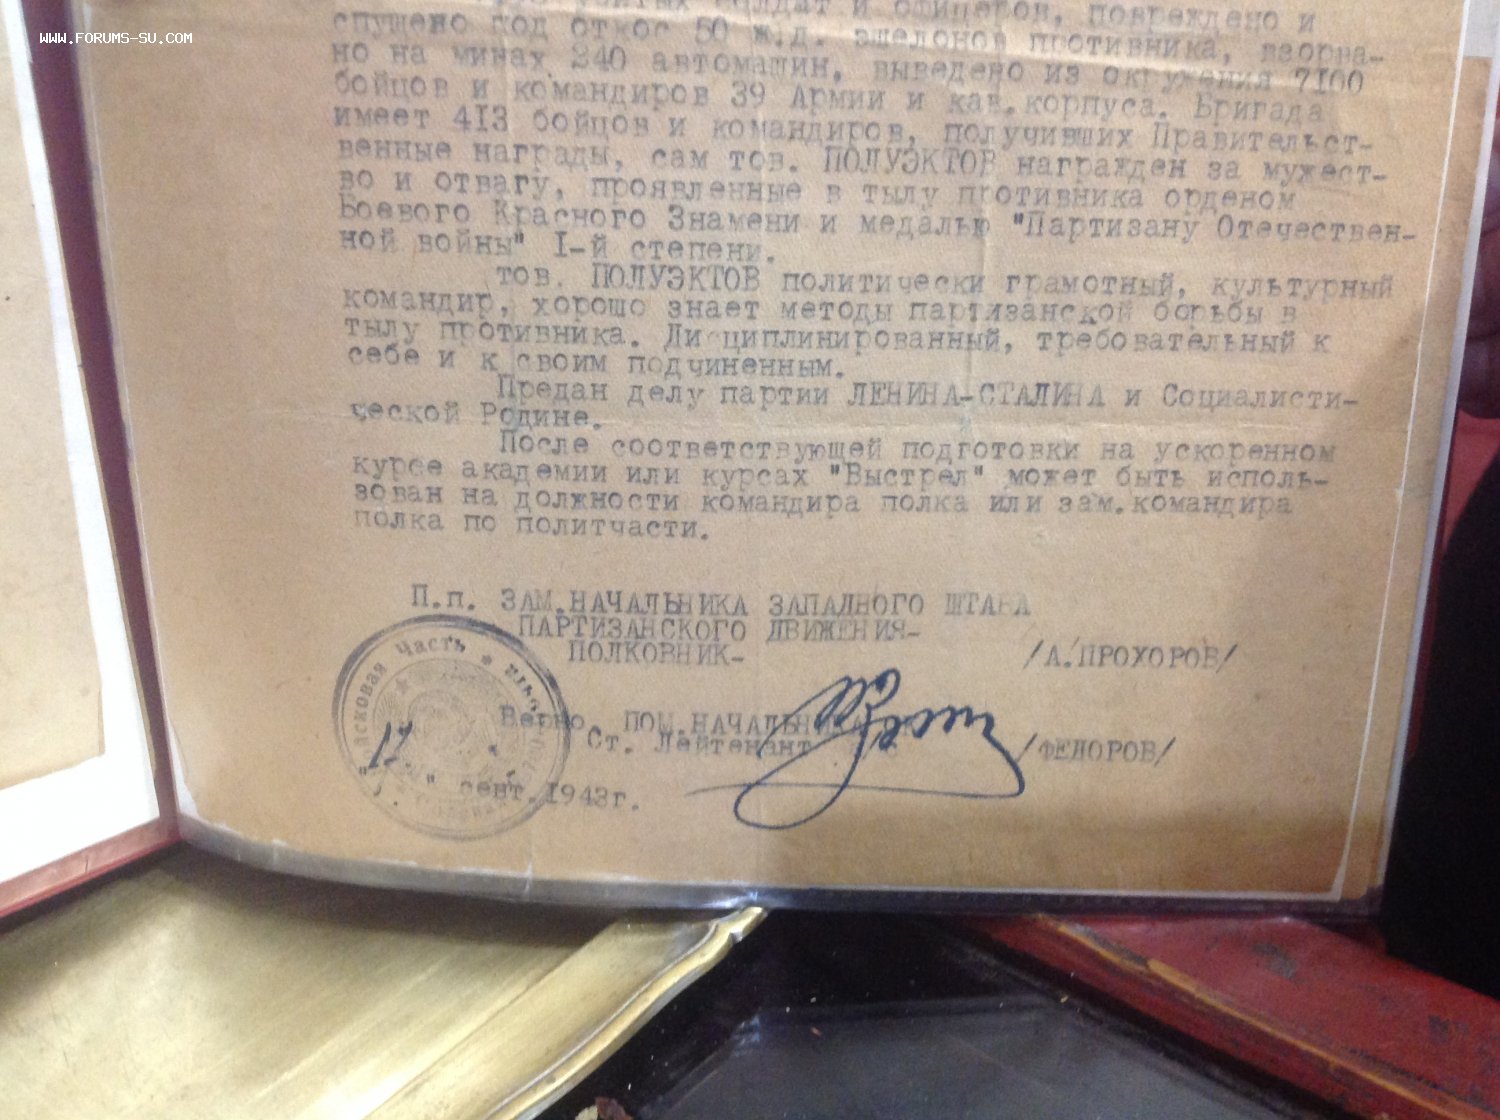 WWW.FORUMS-SU.COM
убитых солдат и офицеров, повреждено и
спущено под откос 50 ж.д. эшелонов противника, взорва-
но на минах 240 автомашин, выведено из окружения 7100
бойцов и командиров 39 Армии и кав.корпуса. Бригада
имеет 413 бойцов и командиров, получивших Правительст-
венные награды, сам тов. ПОЛУЭКТОВ награжден за мужест-
во и отвагу, проявленные в тылу противника орденом
Боевого Красного Знамени и медалью "Партизану Отечествен-
ной войны" I-й степени.
тов. ПОЛУЭКТОВ политически грамотный, культурный
командир, хорошо знает методы партизанской борьбы в
тылу противника. Дисциплинированный, требовательный к
себе и к своим подчиненным.
Предан делу партии ЛЕНИНА-СТАЛИНА и Социалисти-
ческой Родине.
После соответствующей подготовки на ускоренном
курсе академии или курсах "Выстрел" может быть исполь-
зован на должности командира полка или зам.командира
полка по политчасти.
П.п. ЗАМ.НАЧАЛЬНИКА ЗАПАДНОГО ШТАБА
ПАРТИЗАНСКОГО ДВИЖЕНИЯ-
ПОЛКОВНИК- /А.ПРОХОРОВ/
Войсковая часть
Верно. ПОМ.НАЧАЛЬНИКА
Ст. Лейтенант /ФЕДОРОВ/
"21" сент.1943г.